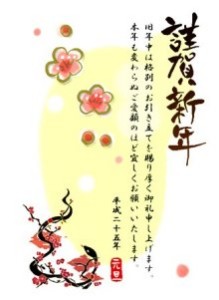 謹賀新年
旧年中は格別のお引き立てを賜り厚く御礼申し上げます。
本年も変わらぬご愛顧のほど宜しくお願いいたします。
平成二十五年
元旦